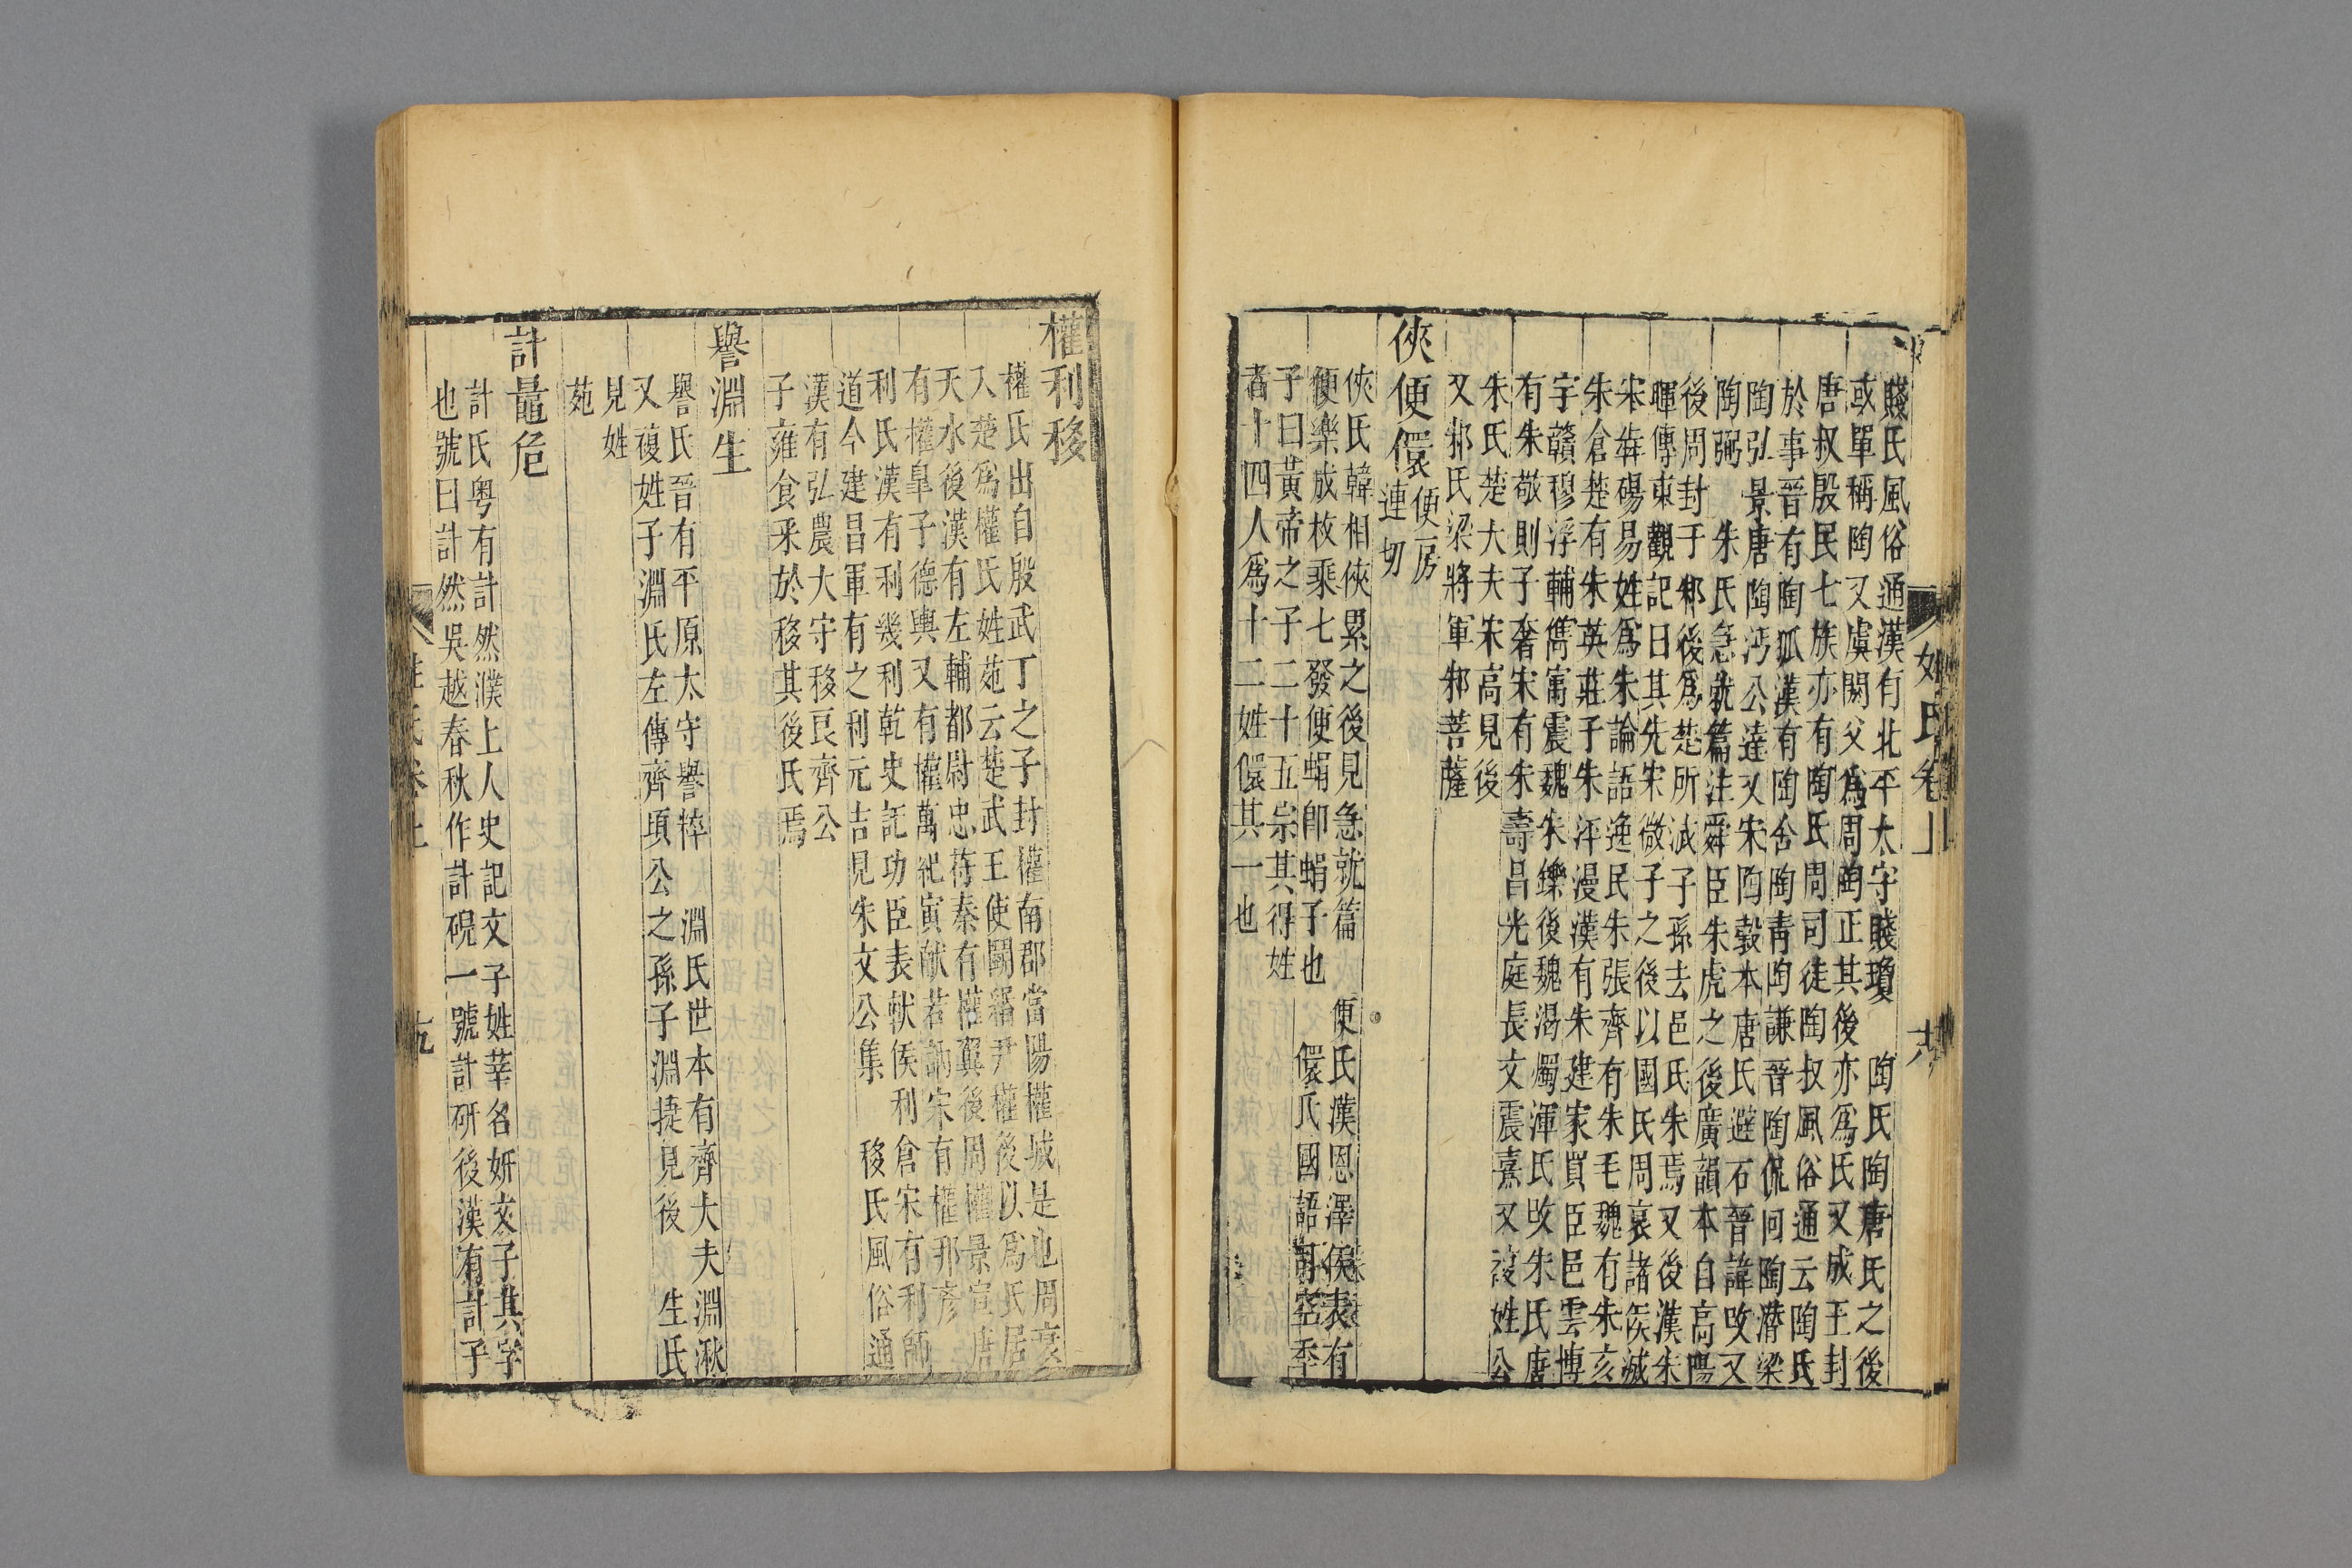 賤氏風俗通漢有北平太守賤瓊　陶氏陶唐氏之後
或單稱陶又虞閼父爲周陶正其後亦爲氏又成王封
唐叔殷民七族亦有陶氏周司徒陶叔風俗通云陶氏
於事晉有陶狐漢有陶舍陶青陶謙晉陶侃同陶潛梁
陶弘景唐陶沔公達又宋陶穀本唐氏避石晉諱改又
陶弼　朱氏急就篇注舜臣朱虎之後廣韻本自高陽
後周封于邾後爲楚所滅子孫去邑氏朱焉又後漢朱
暉傳東觀記曰其先宋微子之後以國氏周衰諸侯滅
宋犇碭易姓爲朱論語逸民朱張齊有朱毛魏有朱亥
朱倉楚有朱英莊子朱泙漫漢有朱建家買臣邑雲博
宇贛穆浮輔儁㝢震魏朱鑠後魏渴濁渾氏改朱氏唐
有朱敬則子奢宋有朱壽昌光庭長文震熹又複姓公
朱氏楚大夫宋高見後
又邾氏梁將軍邾菩薩
俠便儇便房連切
俠氏韓相俠累之後見急就篇　便氏漢恩澤侯表有
便樂成枚乘七發便蜎卽蜎子也　儇氏國語司空季
子曰黃帝之子二十五宗其得姓
者十四人爲十二姓儇其一也
姓氏卷上
權利移
權氏出自殷武丁之子封權南郡當陽權城是也周衰
入楚爲權氏姓苑云楚武王使鬭緡尹權後以爲氏居
天水後漢有左輔都尉忠苻秦有權翼後周權景宣唐
有權皐子德輿又有權萬紀寅献若訥宋有權邦彥
利氏漢有利幾利乾史記功臣表軑侯利倉宋有利師
道今建昌軍有之利元吉見朱文公集　移氏風俗通
漢有弘農大守移良齊公
子雍食釆於移其後氏焉
譽淵生
譽氏晉有平原太守譽粹　淵氏世本有齊大夫淵湫
又複姓子淵氏左傳齊頃公之孫子淵捷見後　生氏
見姓
苑
計鼂危
計氏粤有計然濮上人史記文子姓莘名妍文子其字
也號曰計然吳越春秋作計硯一號計研後漢有計子
姓氏卷上　九